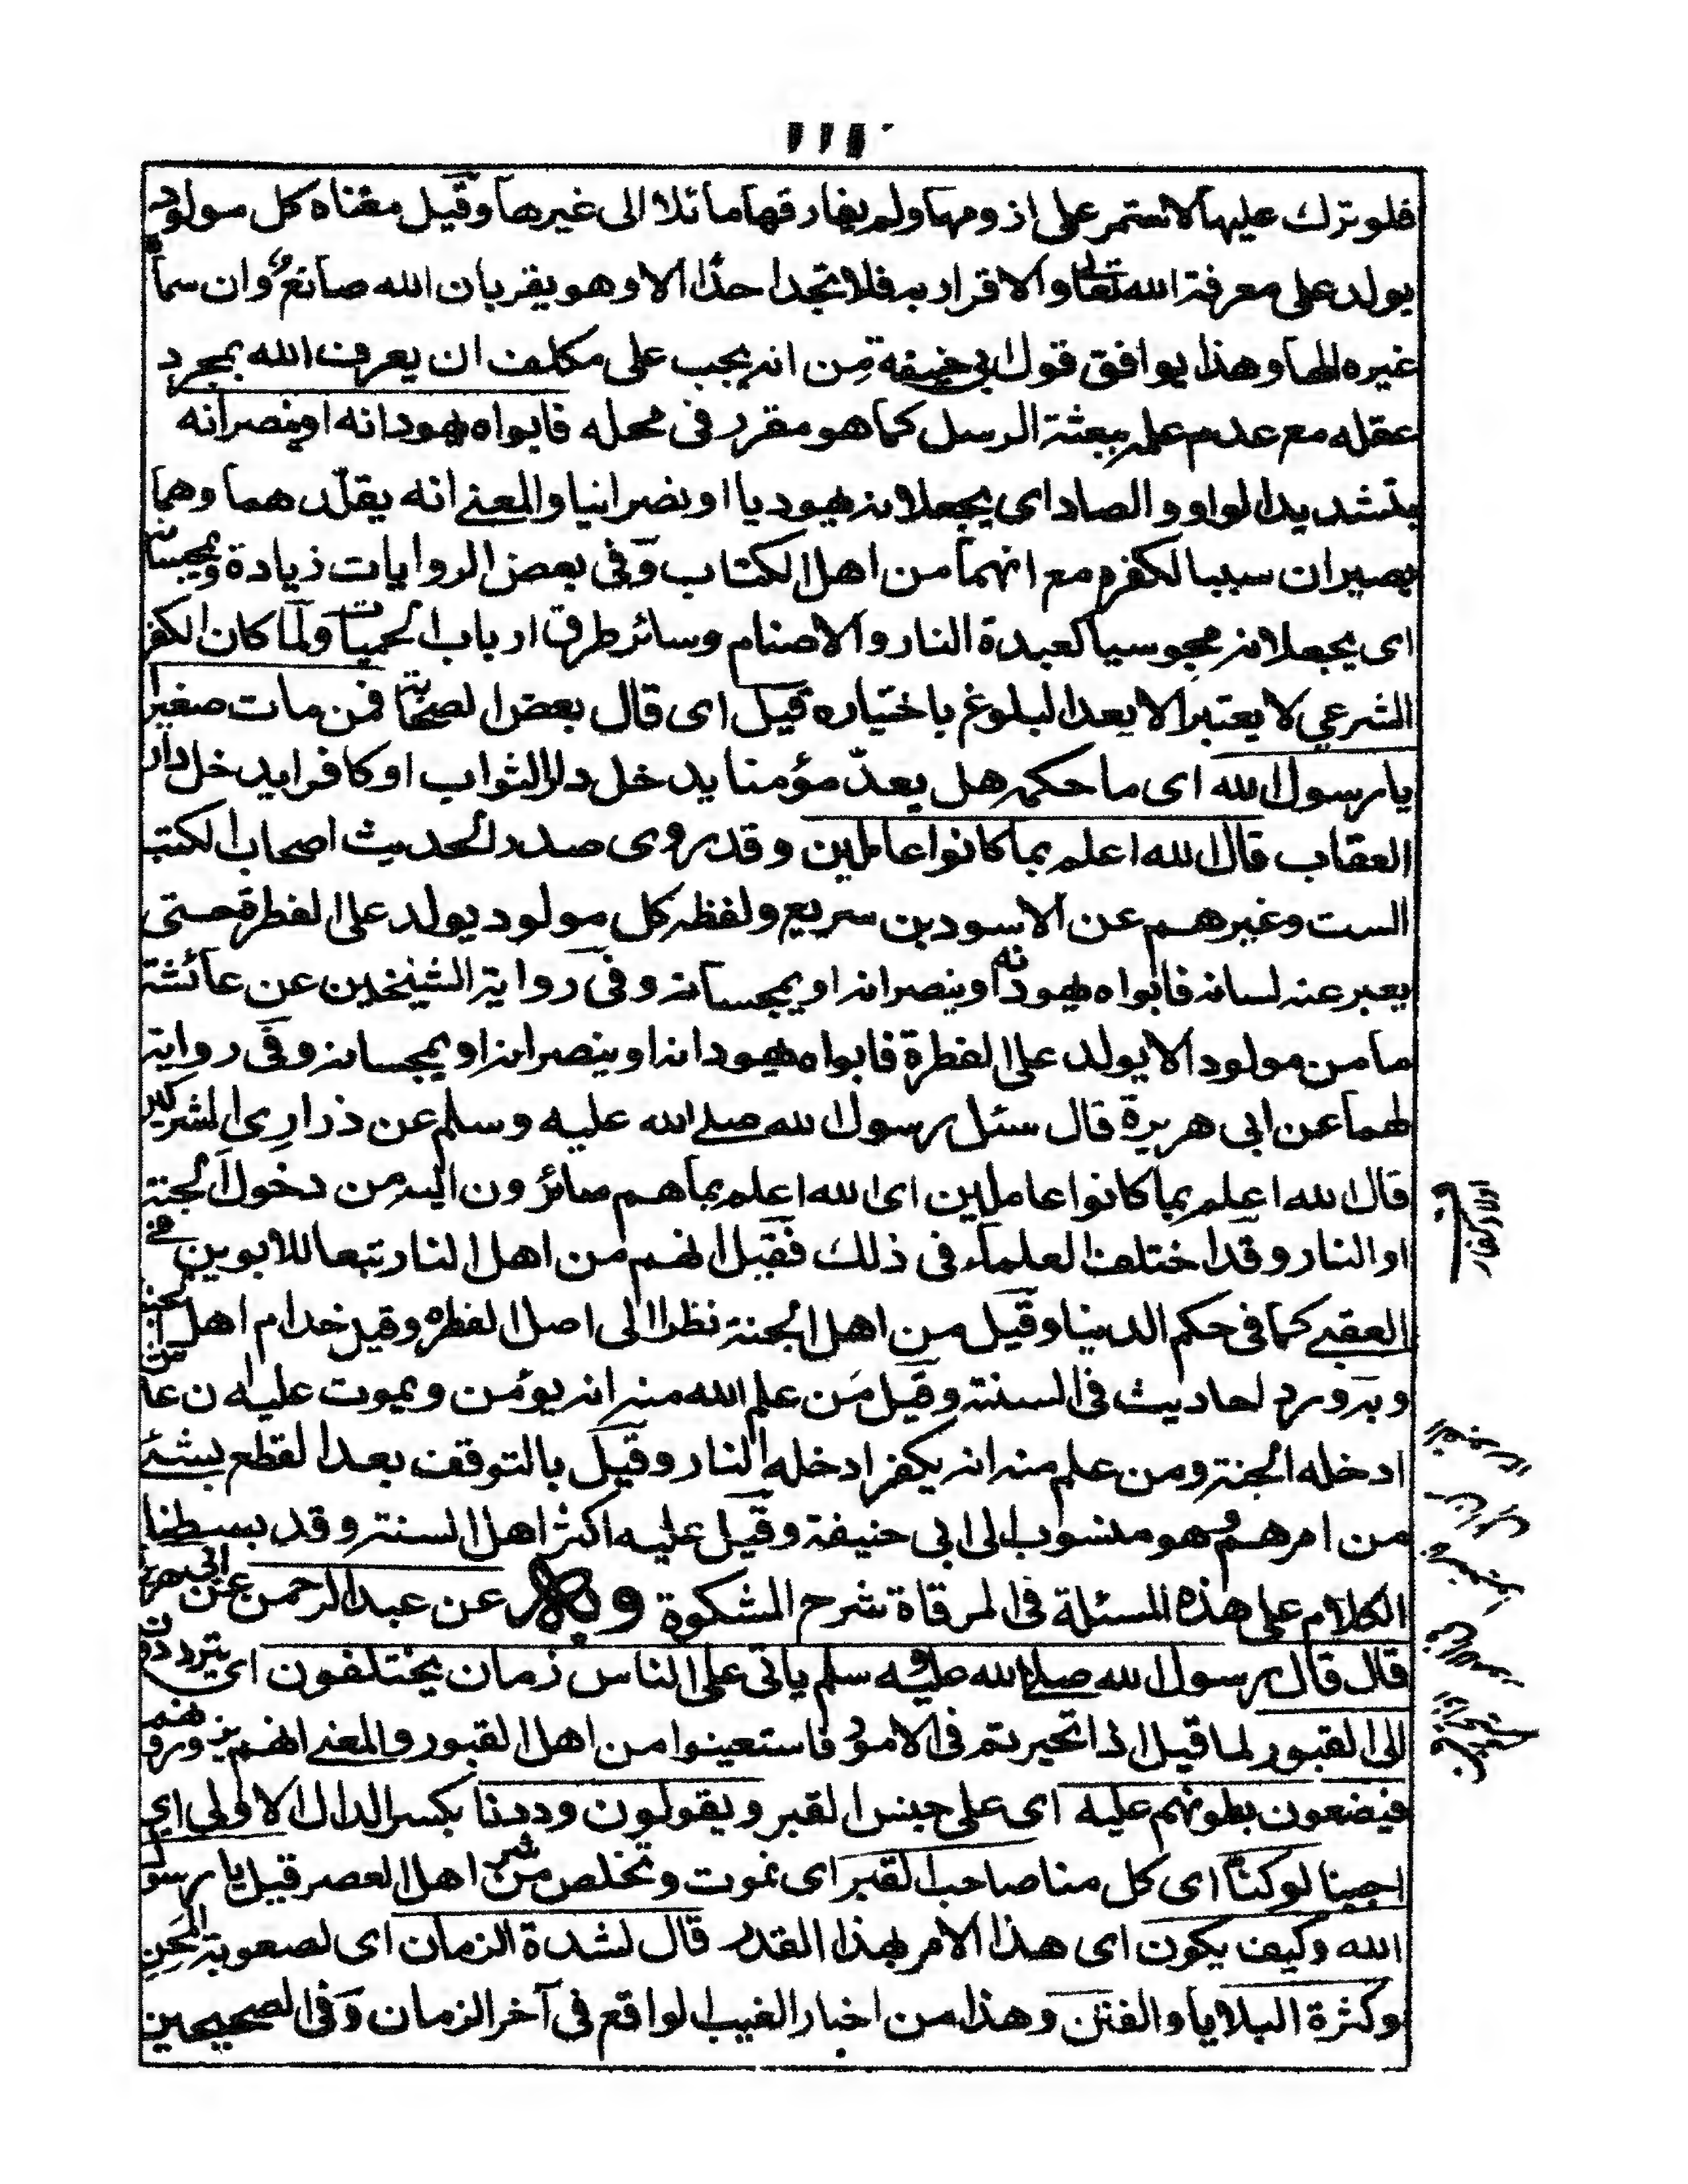 فلو ترك عليها لاستمر على لزومها ولم يفارقها مائلا الى غيرها وقيل معناه كل مولود
يولد على معرفة الله تعالى والاقرار به فلا تجد احدا الا وهو يقر بان الله صانعه وان سما
غيره الها وهذا يوافق قول ابي حنيفة من انه يجب على مكلف ان يعرف الله بمجرد
عقله مع عدم علمه ببعثة الرسل كما هو مقرر فى محله فابواه يهودانه او ينصرانه
بتشديد الواو والصاد اى يجعلانه يهوديا او نصرانيا والمعنے انه يقلدهما وهما
يصيران سببا لكفره مع انهما من اهل الكتاب وفى بعض الروايات زيادة ويمجسانه
اى يجعلانه مجوسيا كعبدة النار والاصنام وسائر طرق ارباب ولما كان الكفر
الشرعي لا يعتبر الا بعد البلوغ باختياره قيل اى قال بعض الصحابة فمن مات صغيرا
يا رسول الله اى ما حكمه هل يعد مؤمنا يدخل دار الثواب او كافرا يدخل دار
العقاب قال الله اعلم بما كانوا عاملين وقد روى صدر الحديث اصحاب الكتب
الست وغيرهم عن الاسود بن سريع ولفظه كل مولود يولد على الفطرة حتى
يعبر عنه لسانه فابواه يهودانه او ينصرانه او يمجسانه وفى رواية الشيخين عن عائشة
ما من مولود الا يولد على الفطرة فابواه يهودانه او ينصرانه او يمجسانه وفى رواية
لهما عن ابى هريرة قال سئل رسول الله صلى الله عليه وسلم عن ذرارى المشركين
قال الله اعلم بما كانوا عاملين اى الله اعلم بما هم صائرون اليه من دخول الجنة
او النار وقد اختلف العلماء فى ذلك فقيل انهم من اهل النار تبعا للابوين فى
العقبے كما فى حكم الدنيا وقيل من اهل الجنة نظرا الى اصل الفطره وقيل خدام اهل الجنة
وبه ورد احاديث فى السنة وقيل من علم الله منه انه يؤمن ويموت عليه ان عاش
ادخله الجنة ومن علم منه انه يكفر ادخله النار وقيل بالتوقف بعد القطع بشئ
من امرهم وهو منسوب الى ابى حنيفة وقيل عليه اكثر اهل السنة وقد بسطنا
الكلام على هذه المسئلة فى المرقاة شرح المشكوة وبه عن عبد الرحمن عن ابى هريرة
قال قال رسول الله صلى الله عليه وسلم ياتى على الناس زمان يختلفون اى يترددون
الى القبور لما قيل اذا تحيرتم فى الامور فاستعينوا من اهل القبور والمعنے انهم يزورونهم
فيضعون بطونهم عليه اى على جنس القبر ويقولون وددنا بكسر الدال الاولى اى
احببنا لو كنا اى كل منا صاحب القبر اى نموت ونخلص من شر اهل العصر قيل يا رسول
الله وكيف يكون اى هذا الامر بهذا القدر قال لشدة الزمان اى لصعوبة المحن
وكثرة البلايا والفتن وهذا من اخبار الغيب الواقع فى آخر الزمان وفى الصحيحين